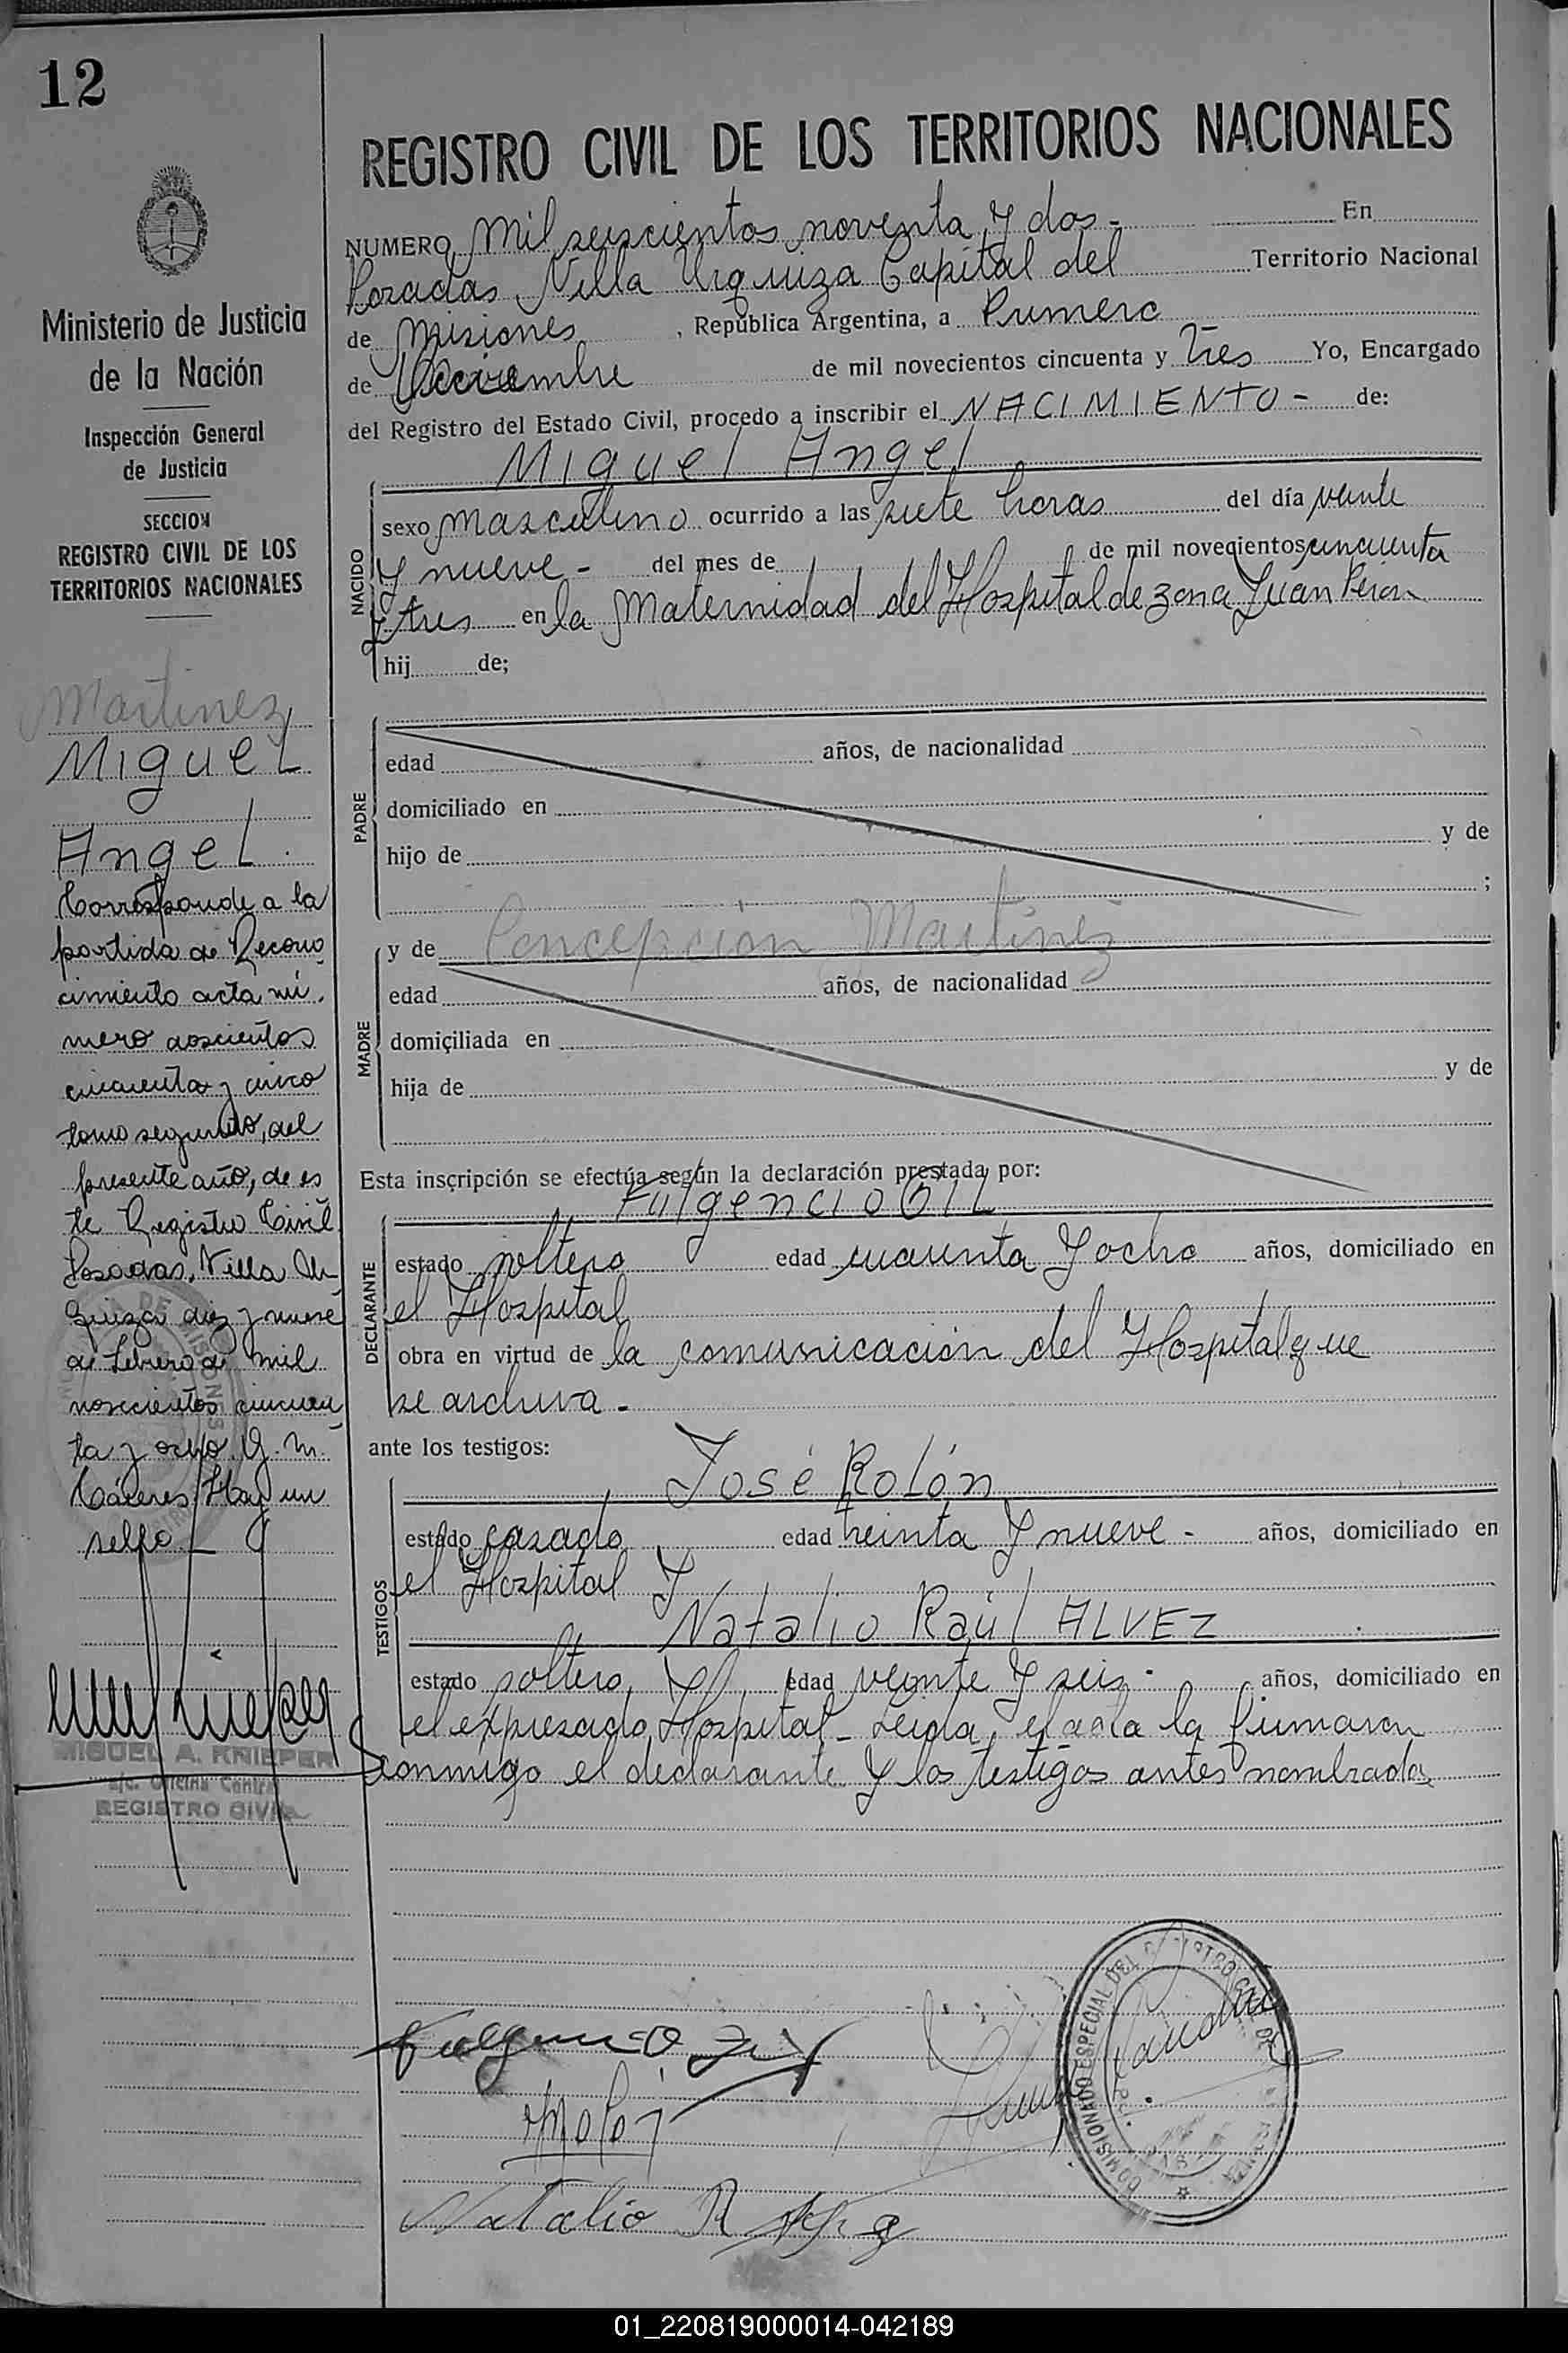 12
Ministerio de Justicia
de la Nación
Inspección General
de Justicia
SECCION
REGISTRO CIVIL DE LOS
TERRITORIOS NACIONALES
Martinez
Miguel
Angel.
Corresponde a la
partida de Recono
cimiento acta nú
mero doscientos
cincuenta y cinco
tomo segundo, del
presente año, de es
te Registro Civil
Posadas, Villa Ur
quiza diez y nueve
de Febrero de mil
novecientos cincuen
ta y ocho. G. M.
Cáceres. Hay un
sello
MIGUEL A. KNIEPER
a/c. Oficina Central
REGISTRO CIVIL
REGISTRO CIVIL DE LOS TERRITORIOS NACIONALES
NUMERO Mil seiscientos noventa y dos - En
Posadas, Villa Urquiza Capital del Territorio Nacional
de Misiones, República Argentina, a Primero
de Diciembre de mil novecientos cincuenta y tres Yo, Encargado
del Registro del Estado Civil, procedo a inscribir el NACIMIENTO - de:
Miguel Angel
NACIDO
sexo masculino ocurrido a las siete horas del día veinte
y nueve - del mes de de mil novecientos cincuenta
y tres en la Maternidad del Hospital de zona Juan Perón
hij de;
PADRE
edad años, de nacionalidad
domiciliado en
hijo de y de
;
MADRE
y de Concepción Martinez
edad años, de nacionalidad
domiciliada en
hija de y de
Esta inscripción se efectúa según la declaración prestada por:
Fulgencio GIL
DECLARANTE
estado soltero edad cuarenta y ocho años, domiciliado en
el Hospital
obra en virtud de la comunicación del Hospital que
se archiva -
ante los testigos:
José Rolón
TESTIGOS
estado casado edad treinta y nueve - años, domiciliado en
el Hospital y
Natalio Raúl ALVEZ
estado soltero, edad veinte y seis - años, domiciliado en
el expresado Hospital - Leida el acta la firmaron
conmigo el declarante y los testigos antes nombrados
Fulgencio Gil
Natalio R
COMISIONADO ESPECIAL DEL REGISTRO CIVIL
01_220819000014-042189